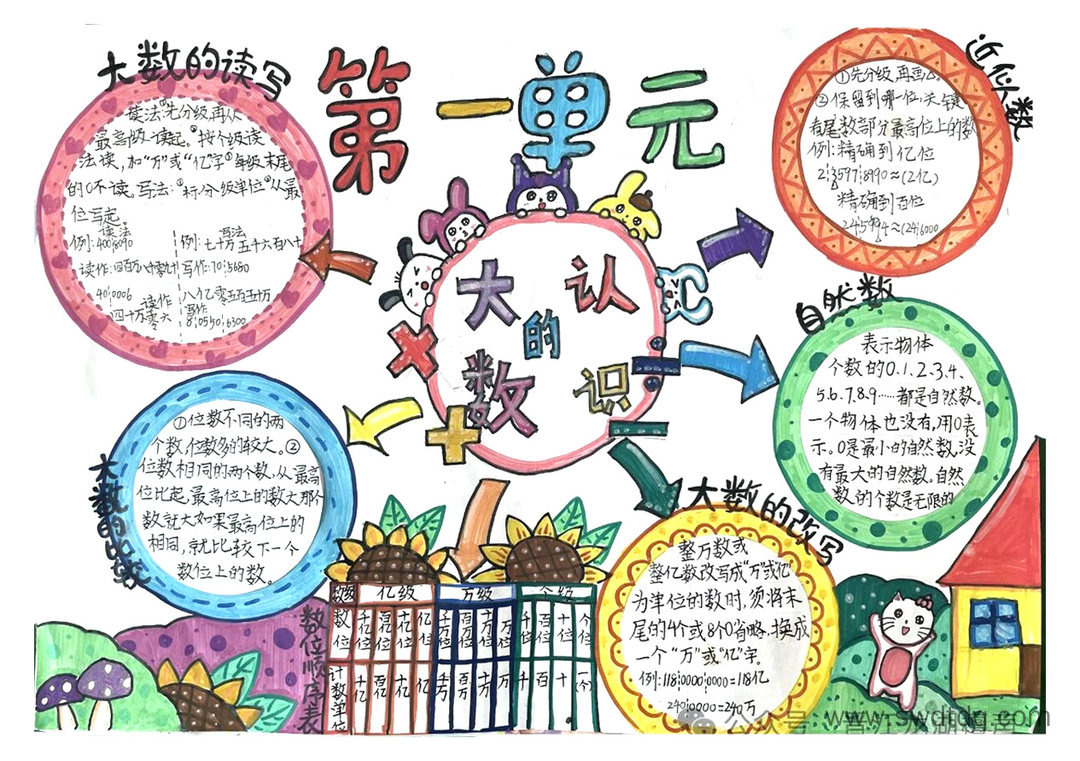 第一单元
大数的认识
大数的读写
读法:①先分级,再从
最高级读起。②按个级读
法读,加“万”或“亿”字③每级末尾
的0不读。写法:①标/分级单位②从最
位写起。
读法
例:400|8090
读作:四百万八千零九十
40|0006 读作
四十万零六
写法
例:七十万五千六百八十
写作:70|5680
八亿零五百五十万
写作
8|0550|6300
近似数
①先分级,再画△。
②保留到哪一位,关键
看尾数部分最高位上的数
例:精确到亿位
2|3597|8990≈(2亿)
精确到百位
24|5994≈(24|6000
自然数
表示物体
个数的0.1.2.3.4、
5.6.7.8.9……都是自然数。
一个物体也没有,用0表
示。0是最小的自然数,没
有最大的自然数。自然
数的个数是无限的
大数的比较
①位数不同的两
个数,位数多的较大。②
位数相同的两个数,从最高
位比起,最高位上的数大那个
数就大如果最高位上的
相同,就比较下一个
数位上的数。
大数的改写
整万数或
整亿数改写成“万”或“亿”
为单位的数时,须将末
尾的4个或8个0省略,换成
一个“万”或“亿”字。
例:118|0000|0000=118亿
240|0000=240万
数位顺序表
数级 亿级 万级 个级
数位 千亿位 百亿位 十亿位 亿位 千万位 百万位 十万位 万位 千位 百位 十位 个位
计数单位 千亿 百亿 十亿 亿 千万 百万 十万 万 千 百 十 一个
公众号
www.swdtdq.com